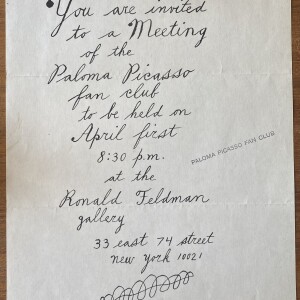 You are invited
to a Meeting
of the
Paloma Picasso
fan club
to be held on
April first
8:30 p.m.
at the
Ronald Feldman
gallery
33 east 74 street
new york 10021
PALOMA PICASSO FAN CLUB